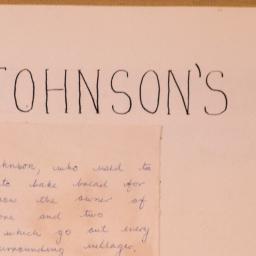 JOHNSON'S
hnson, who used to
to bake bread for
now the owner of
one and two
which go out every
urrounding villages.